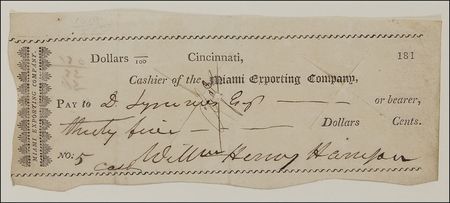 MIAMI EXPORTING COMPANY.
Dollars /100 Cincinnati, 181
Cashier of the Miami Exporting Company,
PAY to D. Symmes Esqr or bearer,
thirty five Dollars Cents.
NO: 5
Willm Henry Harrison